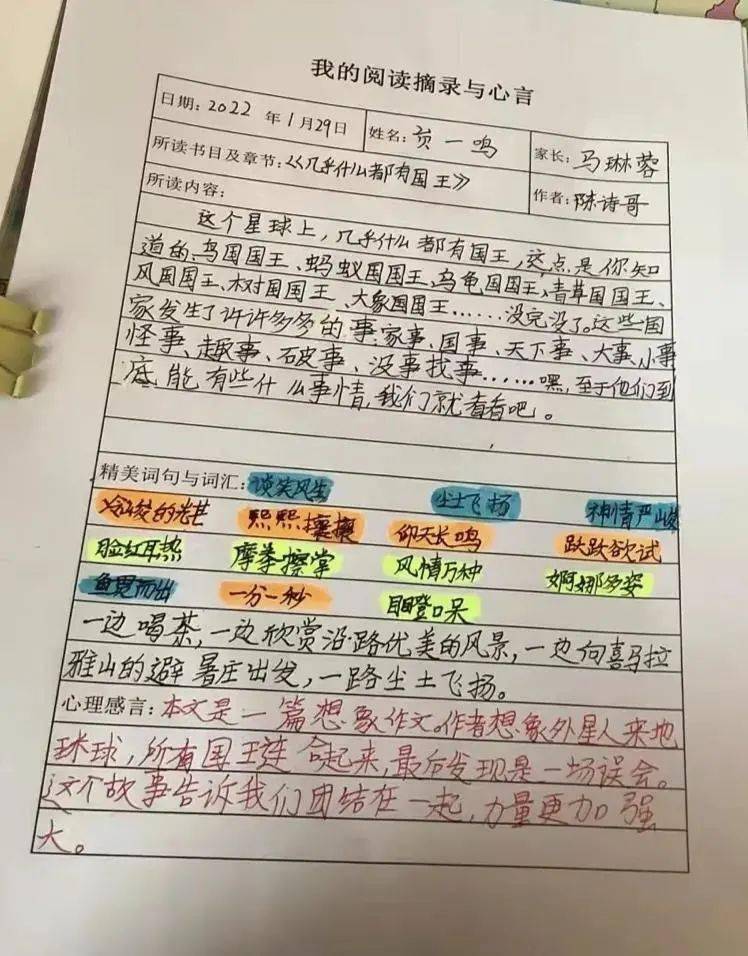 我的阅读摘录与心言
日期：2022 年 1月29日 姓名：贡一鸣 家长：马琳蓉
所读书目及章节：《几乎什么都有国王》 作者：陈诗哥
所读内容：
这个星球上，几乎什么都有国王，这点是你知
道的。鸟国国王、蚂蚁国国王、乌龟国国王、青草国国王、
风国国王、树国国王、大象国国王……没完没了。这些国
家发生了许许多多的事：家事、国事、天下事、大事、小事
怪事、趣事、破事、没事找事……嘿，至于他们到
底能有些什么事情，我们就看看吧。
精美词句与词汇：谈笑风生 尘土飞扬 神情严峻
冷峻的光芒 熙熙攘攘 仰天长鸣 跃跃欲试
脸红耳热 摩拳擦掌 风情万种 婀娜多姿
鱼贯而出 一分一秒 目瞪口呆
一边喝茶，一边欣赏沿路优美的风景，一边向喜马拉
雅山的避暑庄出发，一路尘土飞扬。
心理感言：本文是一篇想象作文。作者想象外星人来地
球，所有国王连合起来，最后发现是一场误会。
这个故事告诉我们团结在一起，力量更加强
大。